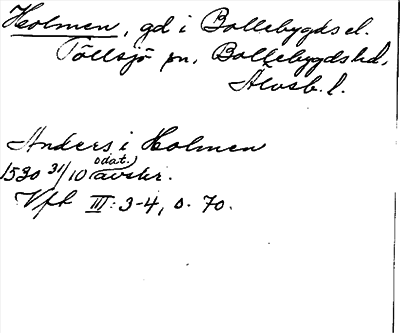 Holmen, gd i Bollebygds el.
Töllsjö sn, Bollebygds hd,
Älvsb. l.
Anders i Holmen
1530 31/10 (odat.) avskr.
Vfh III: 3-4, o. 70.